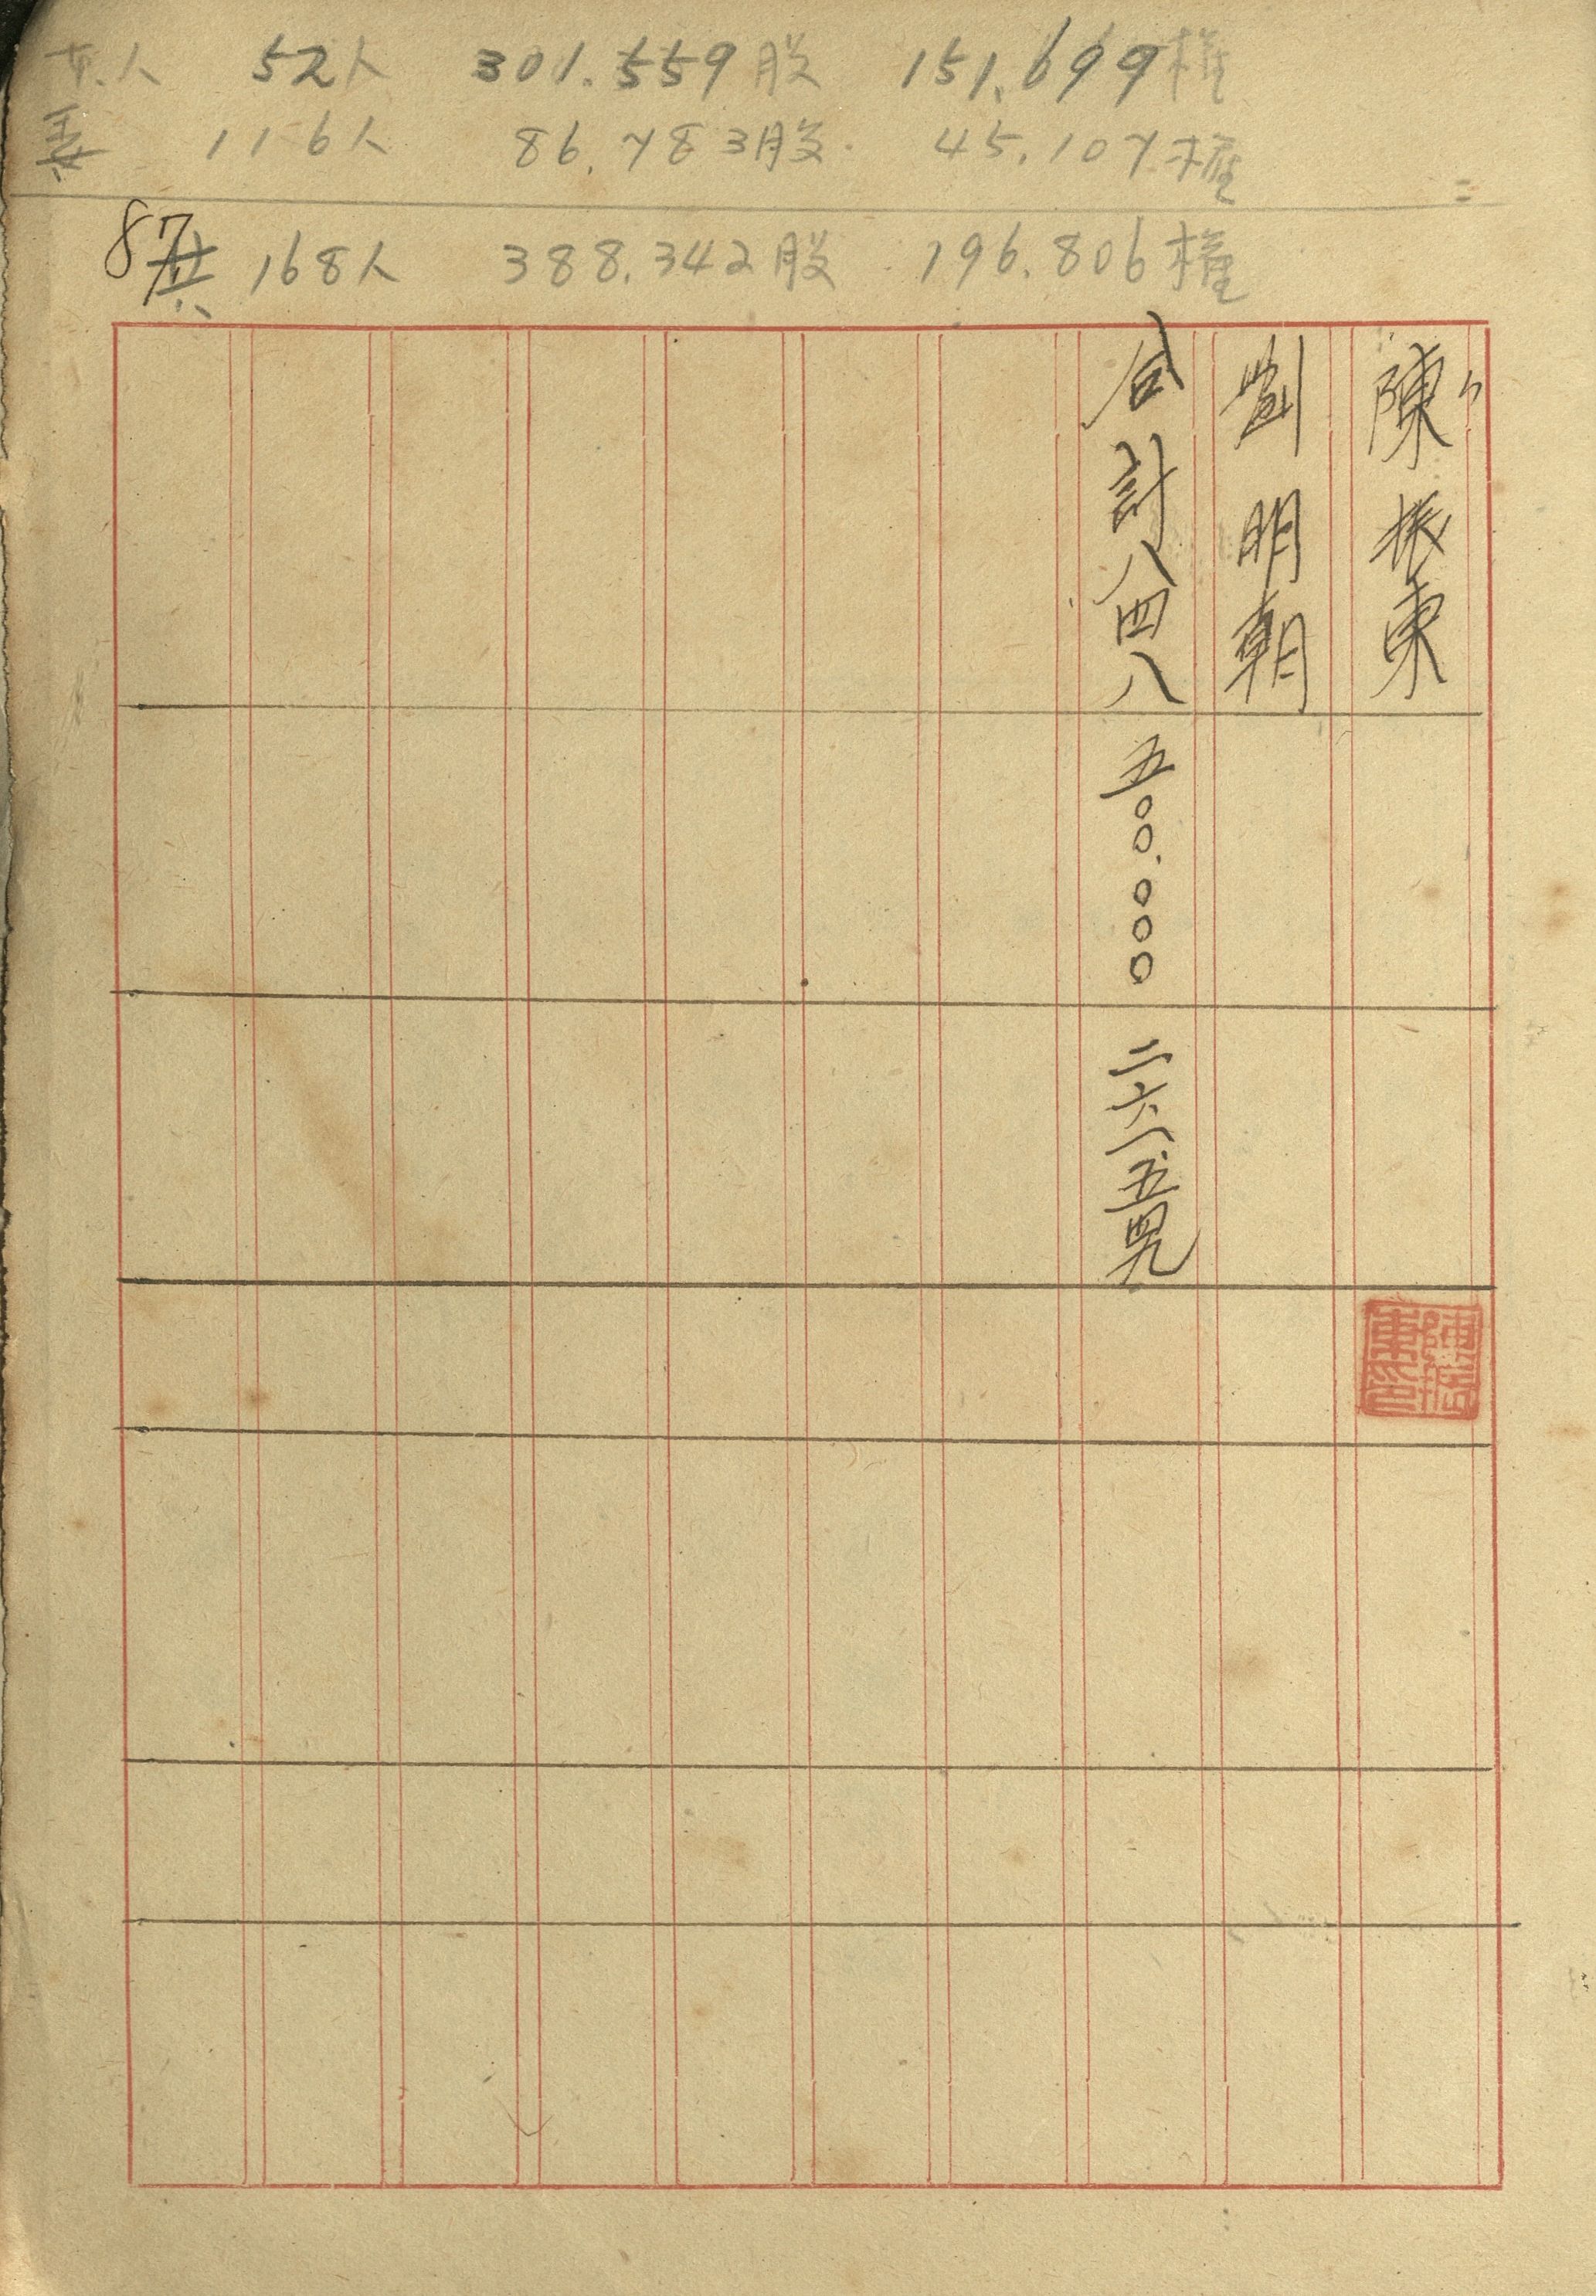 本人 52人 301.559股 151,699權
委 116人 86.783股 45.107權
87
共 168人 388.342股 196.806權
陳振東
劉明朝
合計八四八 五〇〇.〇〇〇 二六一.五四九
陳振東印